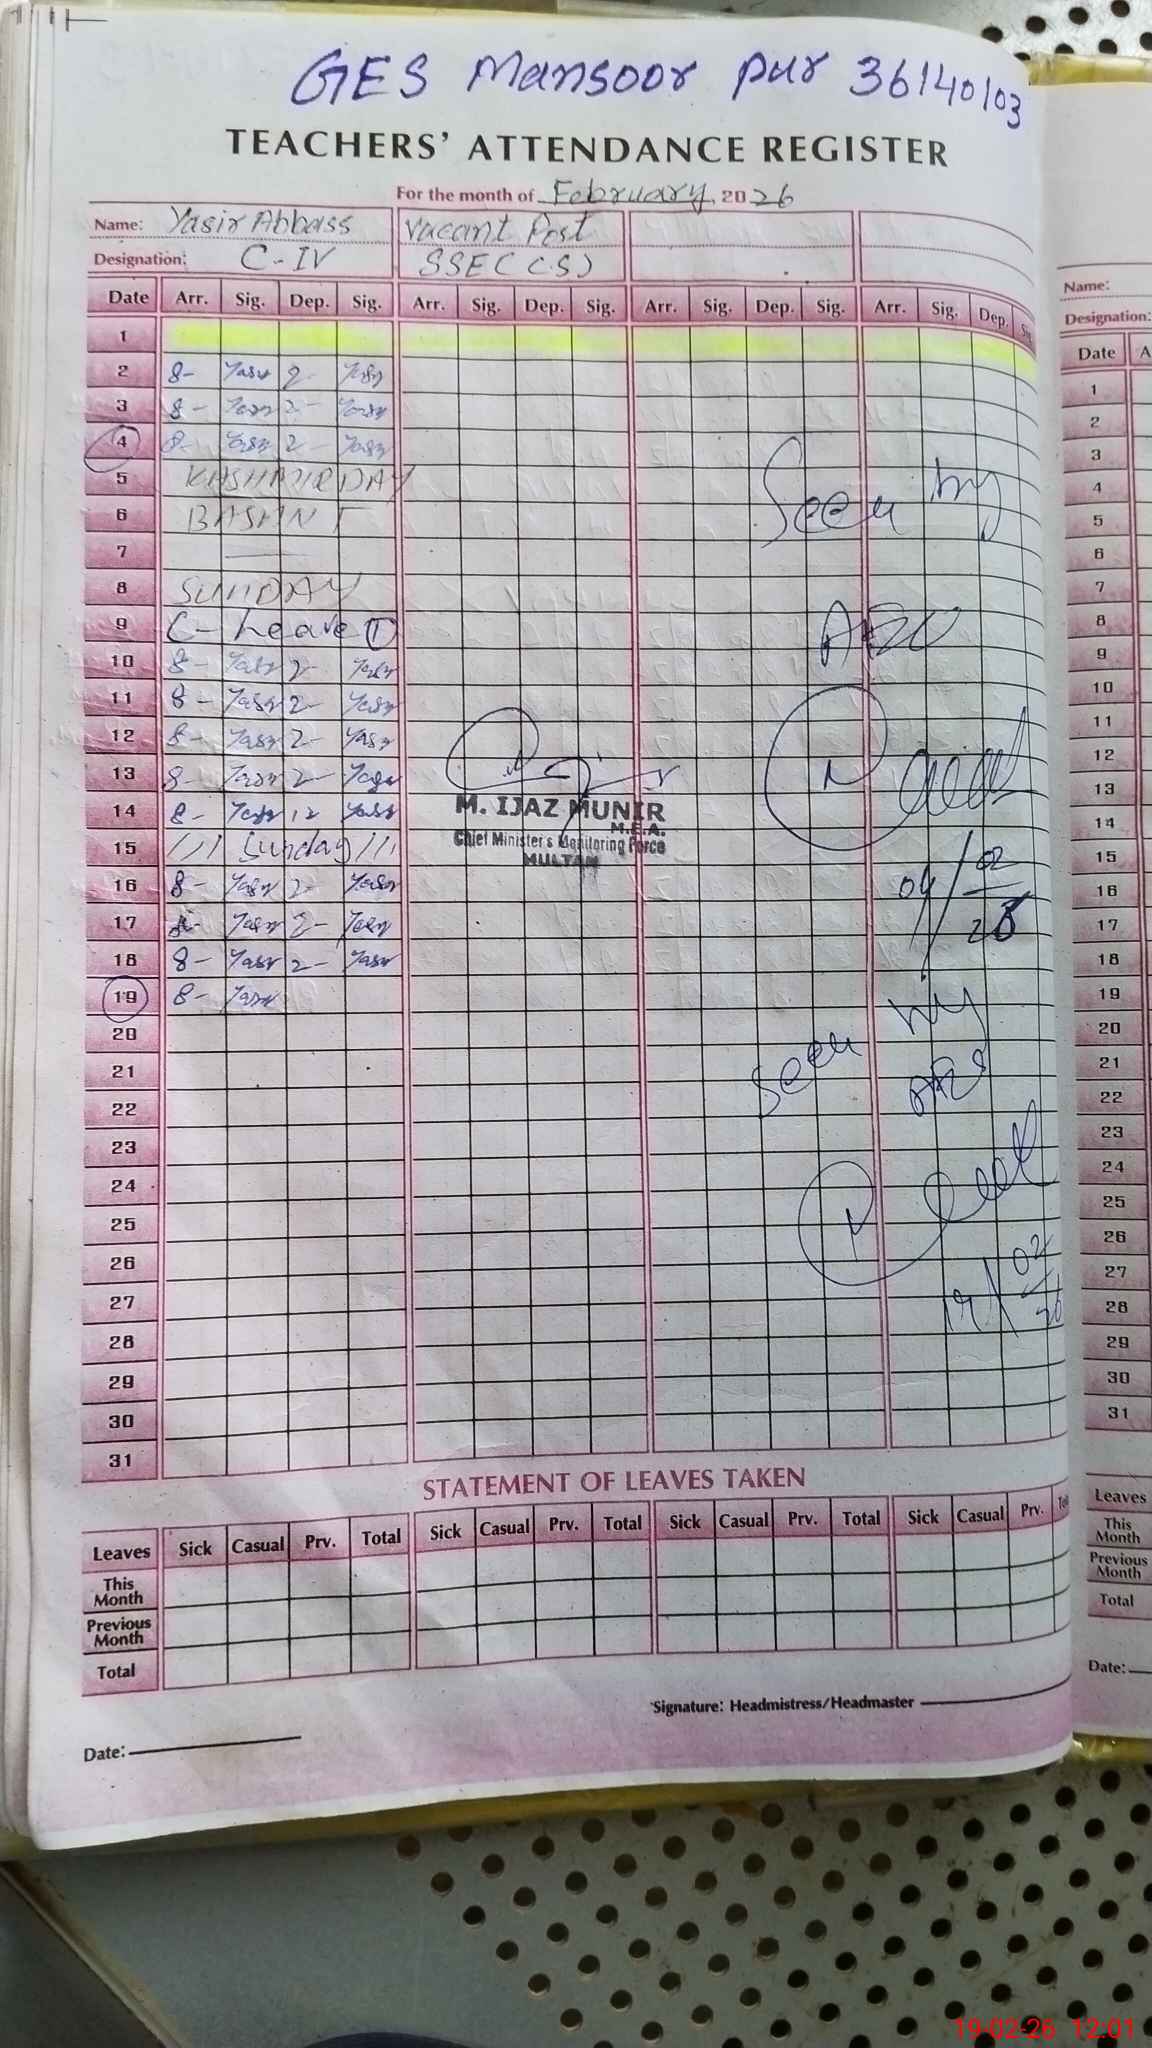 GES Mansoor pur 36140103
TEACHERS' ATTENDANCE REGISTER
For the month of February, 2026
Name: Yasir Abbass Vacant Post
Designation: C-IV SSE(C.S)
Date Arr. Sig. Dep. Sig. Arr. Sig. Dep. Sig. Arr. Sig. Dep. Sig. Arr. Sig. Dep. Sig.
1
2 8- Yasir 2- Yasir
3 8- Yasir 2- Yasir
4 8- Yasir 2- Yasir
5 KASHMIR DAY
6 BASANT
7
8 SUNDAY
9 C-Leave 1
10 8- Yasir 2- Yasir
11 8- Yasir 2- Yasir
12 8- Yasir 2- Yasir
13 8- Yasir 2- Yasir
14 8- Yasir 12 Yasir
15 /// Sunday ///
16 8- Yasir 2- Yasir
17 8- Yasir 2- Yasir
18 8- Yasir 2- Yasir
19 8- Yasir
20
21
22
23
24
25
26
27
28
29
30
31
Seen by
AEO
04/02
M. IJAZ MUNIR
M.E.A.
Chief Minister's Monitoring Force
MULTAN
Seen by
19/02/26
STATEMENT OF LEAVES TAKEN
Leaves Sick Casual Prv. Total Sick Casual Prv. Total Sick Casual Prv. Total Sick Casual Prv.
This Month
Previous Month
Total
Signature: Headmistress/Headmaster
Date:
Name:
Designation:
Date A
1
2
3
4
5
6
7
8
9
10
11
12
13
14
15
16
17
18
19
20
21
22
23
24
25
26
27
28
29
30
31
Leaves
This Month
Previous Month
Total
Date:
19-02-26 12:01